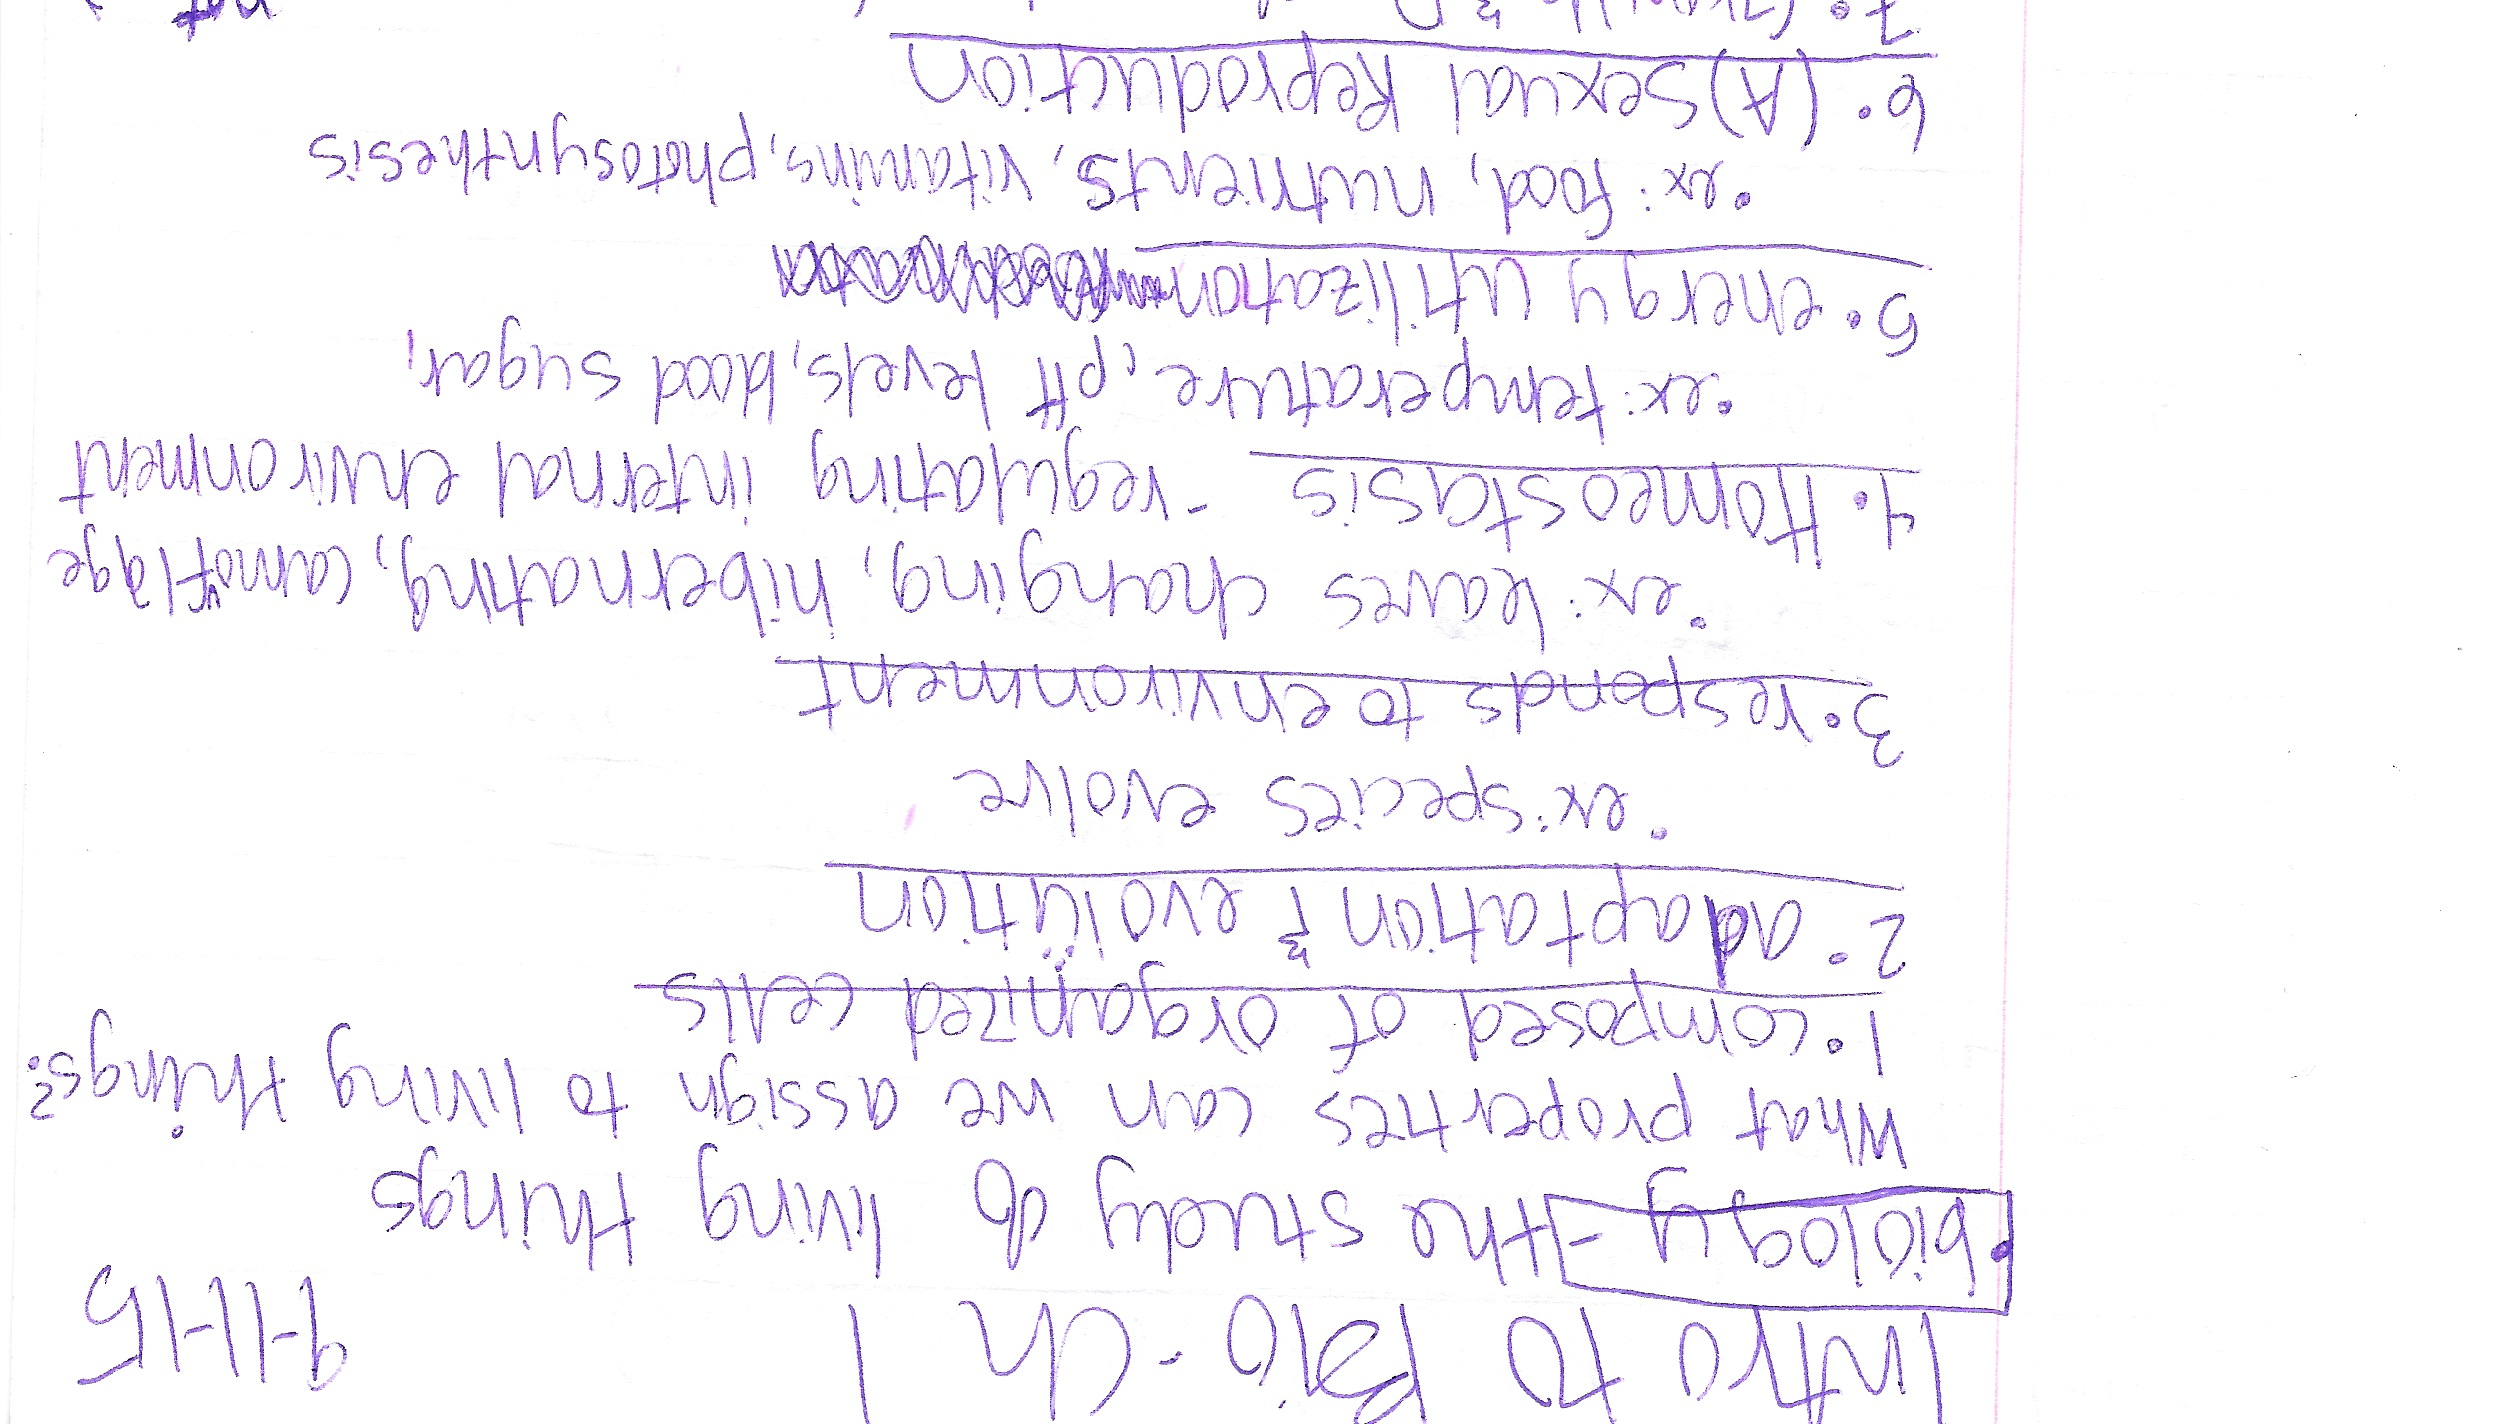 Intro to Bio - Ch 1 9-11-15
• biology - the study of living things
What properties can we assign to living things?
1. composed of organized cells
2. adaptation & evolution
• ex: species evolve
3. responds to environment
• ex: leaves changing, hibernating, camoflage
4. Homeostasis - regulating internal environment
• ex: temperature, pH levels, blood sugar,
5. energy utilization
• ex: food, nutrients, vitamins, photosynthesis
6. (A)sexual Reproduction
7. &